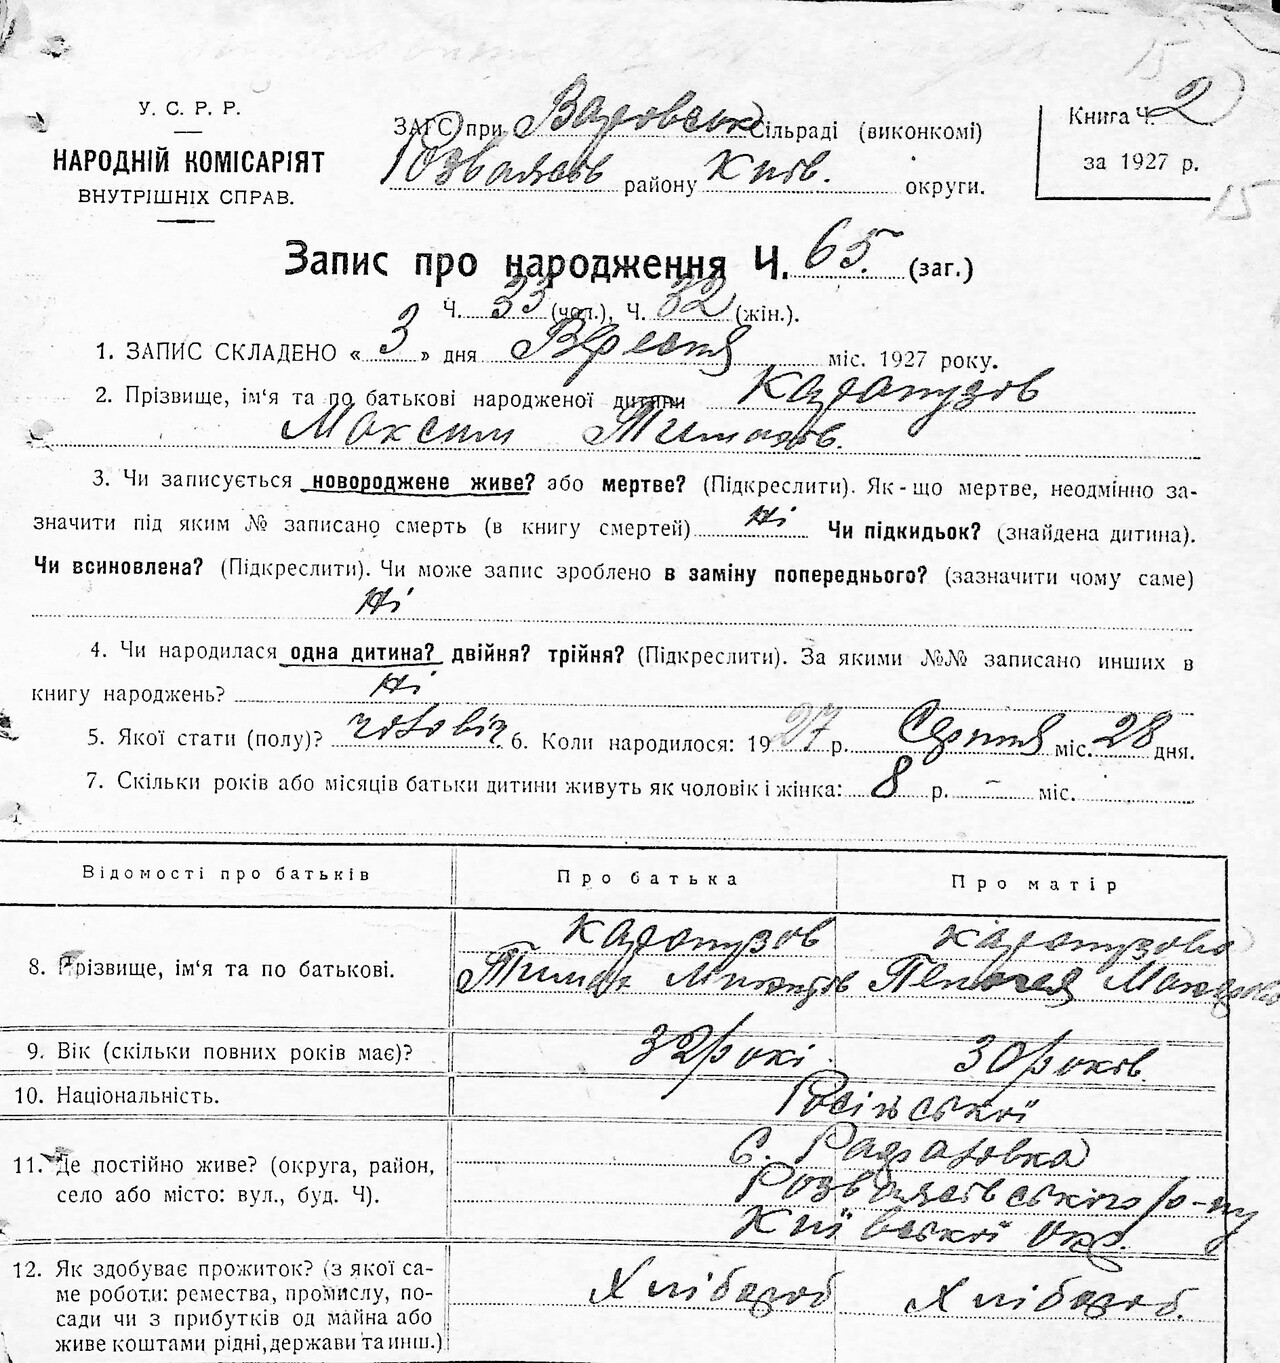 15
У. С. Р. Р.
НАРОДНІЙ КОМІСАРІЯТ
ВНУТРІШНІХ СПРАВ.
ЗАГС при Варовськ Сільраді (виконкомі)
Розважів району Київ. округи.
Книга Ч. 2
за 1927 р.
15
Запис про народження Ч. 65. (заг.)
Ч. 33 (чол.), Ч. 32 (жін.).
1. ЗАПИС СКЛАДЕНО « 3 » дня Вересня міс. 1927 року.
2. Прізвище, ім‘я та по батькові народженої дитини Карапузов
Максим Тимохв.
3. Чи записується новороджене живе? або мертве? (Підкреслити). Як-що мертве, неодмінно за-
значити під яким № записано смерть (в книгу смертей) Ні Чи підкидьок? (знайдена дитина).
Чи всиновлена? (Підкреслити). Чи може запис зроблено в заміну попереднього? (зазначити чому саме)
Ні
4. Чи народилася одна дитина? двійня? трійня? (Підкреслити). За якими №№ записано инших в
книгу народжень? Ні
5. Якої стати (полу)? чоловіч. 6. Коли народилося: 1927 р. Серпня міс. 28 дня.
7. Скільки років або місяців батьки дитини живуть як чоловік і жінка: 8 р. - міс.
Відомості про батьків
Про батька
Про матір
8. Прізвище, ім‘я та по батькові.
Карапузов
Карапузова
9. Вік (скільки повних років має)?
32 рокі
30 років.
10. Національність.
Російської
11. Де постійно живе? (округа, район,
село або місто: вул., буд. Ч).
С.
Розважівського р-ну
Київської Окр.
12. Як здобуває прожиток? (з якої са-
ме роботи: ремества, промислу, по-
сади чи з прибутків од майна або
живе коштами рідні, держави та инш.)
Хлібороб
Хлібороб.